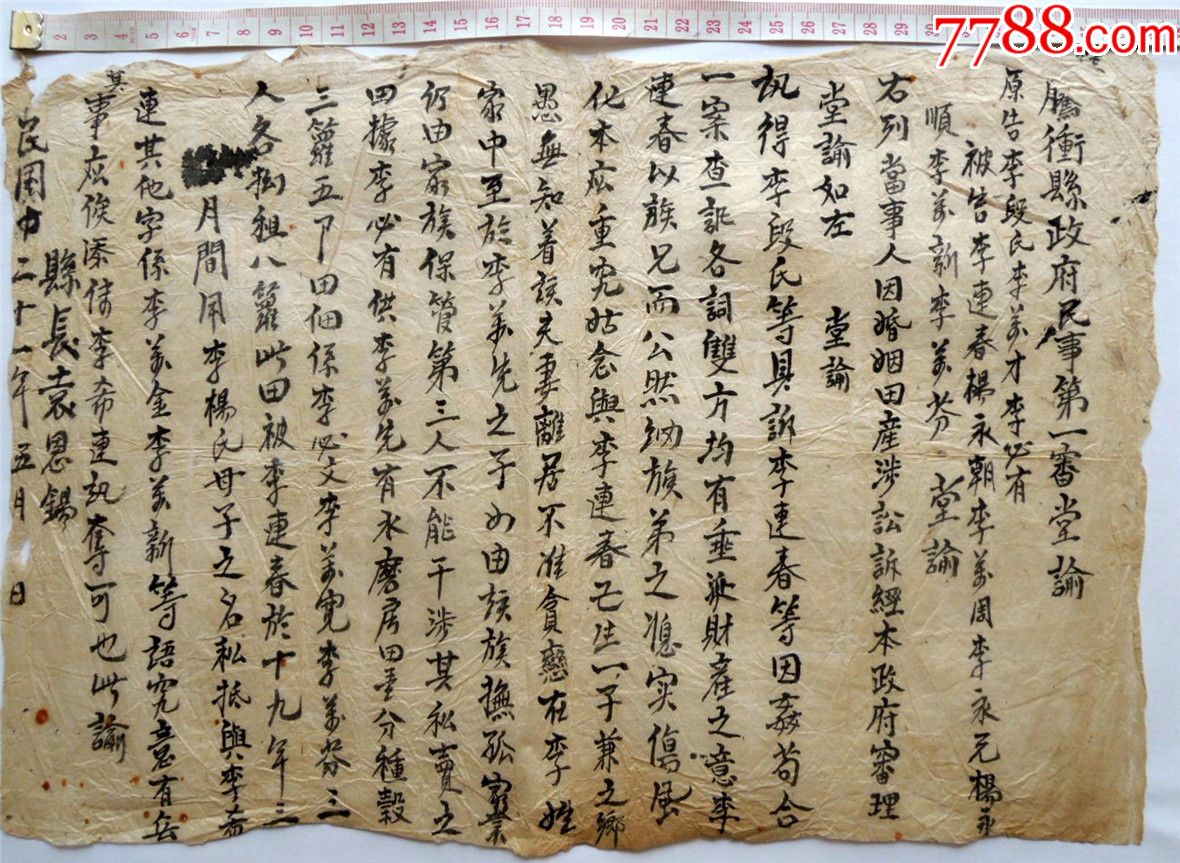 7788.com
騰衝縣政府民事第一審堂諭
原告李段氏李萬才李必有
被告李連春楊永朝李萬周李永元楊永
順李萬新李萬芬 堂諭
右列當事人因婚姻田産涉訟訴經本政府審理
堂諭如左 堂諭
訊得李段氏等具訴李連春等因姦苟合
一案查訊各詞雙方均有垂涎財產之意李
連春以族兄而公然納族弟之媳实傷風
化本应重究姑念與李連春已生一子兼之鄉
愚無知着該夫妻離居不准貪戀在李姓
家中至於李萬先之子如由該族撫孤家業
仍由家族保管第三人不能干涉其私賣之
田據李必有供李萬先有水磨房里分種穀
三籮五 田佃係李必文李萬寬李萬芬三
人各 租八籮此田被李連春於十九年三
月間用李楊氏母子之名私抵與李希
連其他字係李萬金李萬新等語究竟有無
其事应俟添傳李希連訊奪可也此諭
縣長袁恩錫
民國 二十一年五月 日